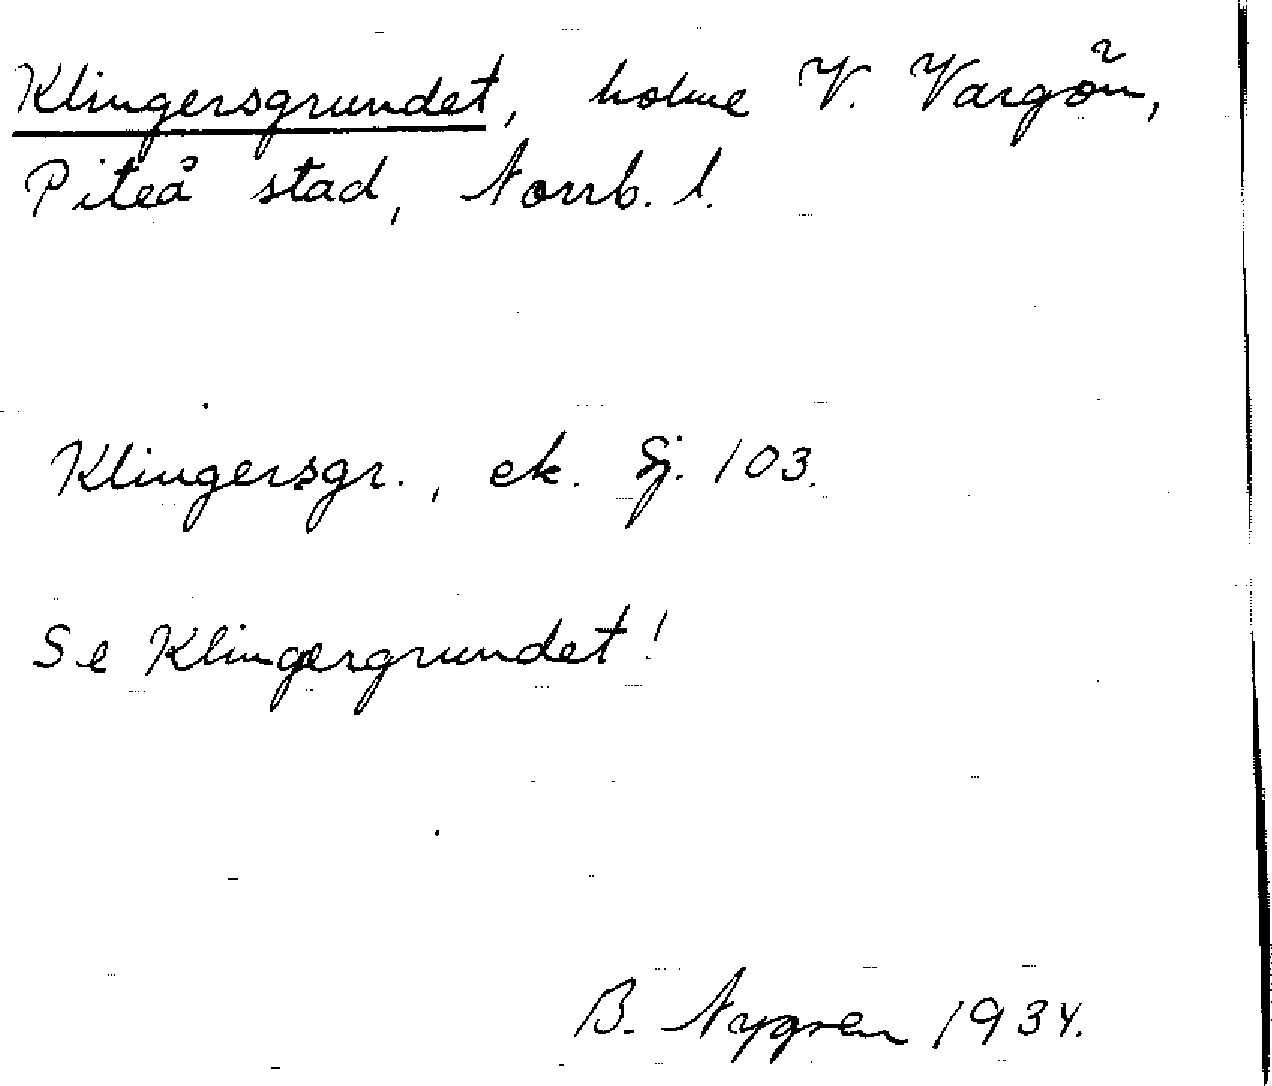 Klingersgrundet, holme V. Vargön,
Piteå stad, Norrb. l.
Klingersgr., ek. Sj. 103.
Se Klingergrundet!
B. Nygren 1934.